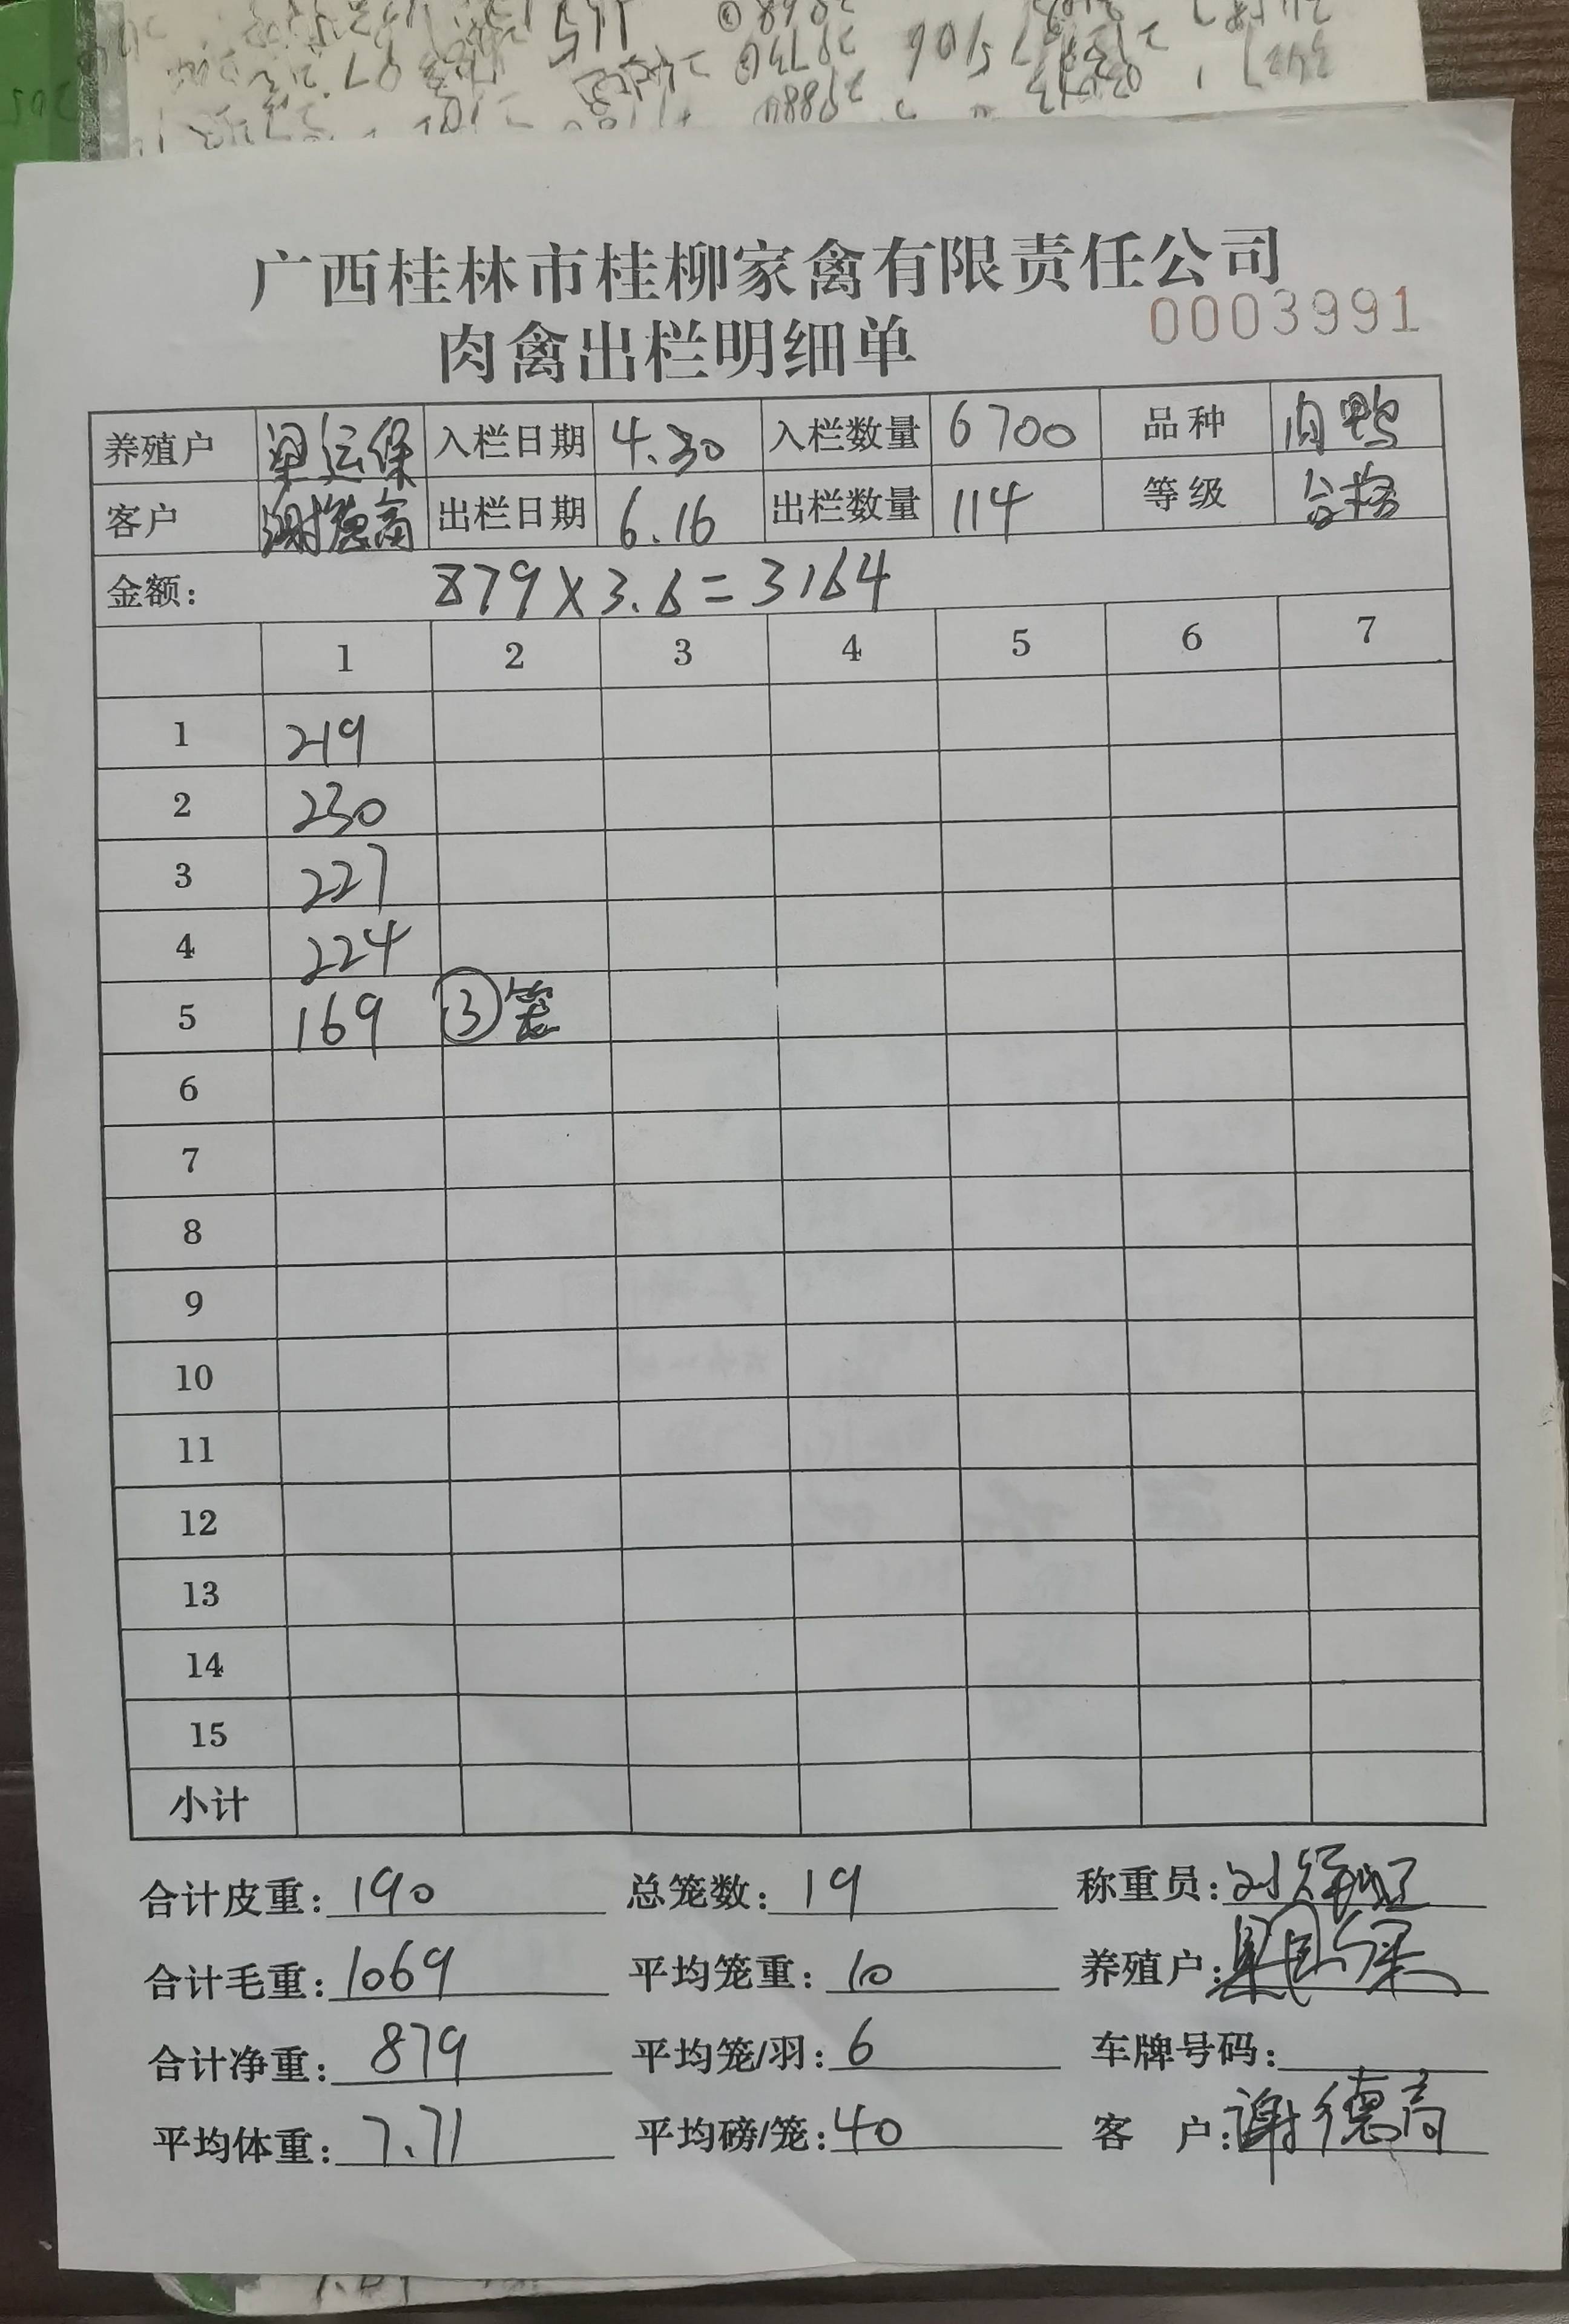 广西桂林市桂柳家禽有限责任公司
肉禽出栏明细单
0003991
养殖户 梁运保 入栏日期 4.30 入栏数量 6700 品种 肉鸭
客户 谢德高 出栏日期 6.16 出栏数量 114 等级 合格
金额: 879×3.6=3164
1 2 3 4 5 6 7
1 219
2 230
3 227
4 224
5 169 ③笼
6
7
8
9
10
11
12
13
14
15
小计
合计皮重: 190 总笼数: 19 称重员:
合计毛重: 1069 平均笼重: 10 养殖户:
合计净重: 879 平均笼/羽: 6 车牌号码:
平均体重: 7.71 平均磅/笼: 40 客户: 谢德高